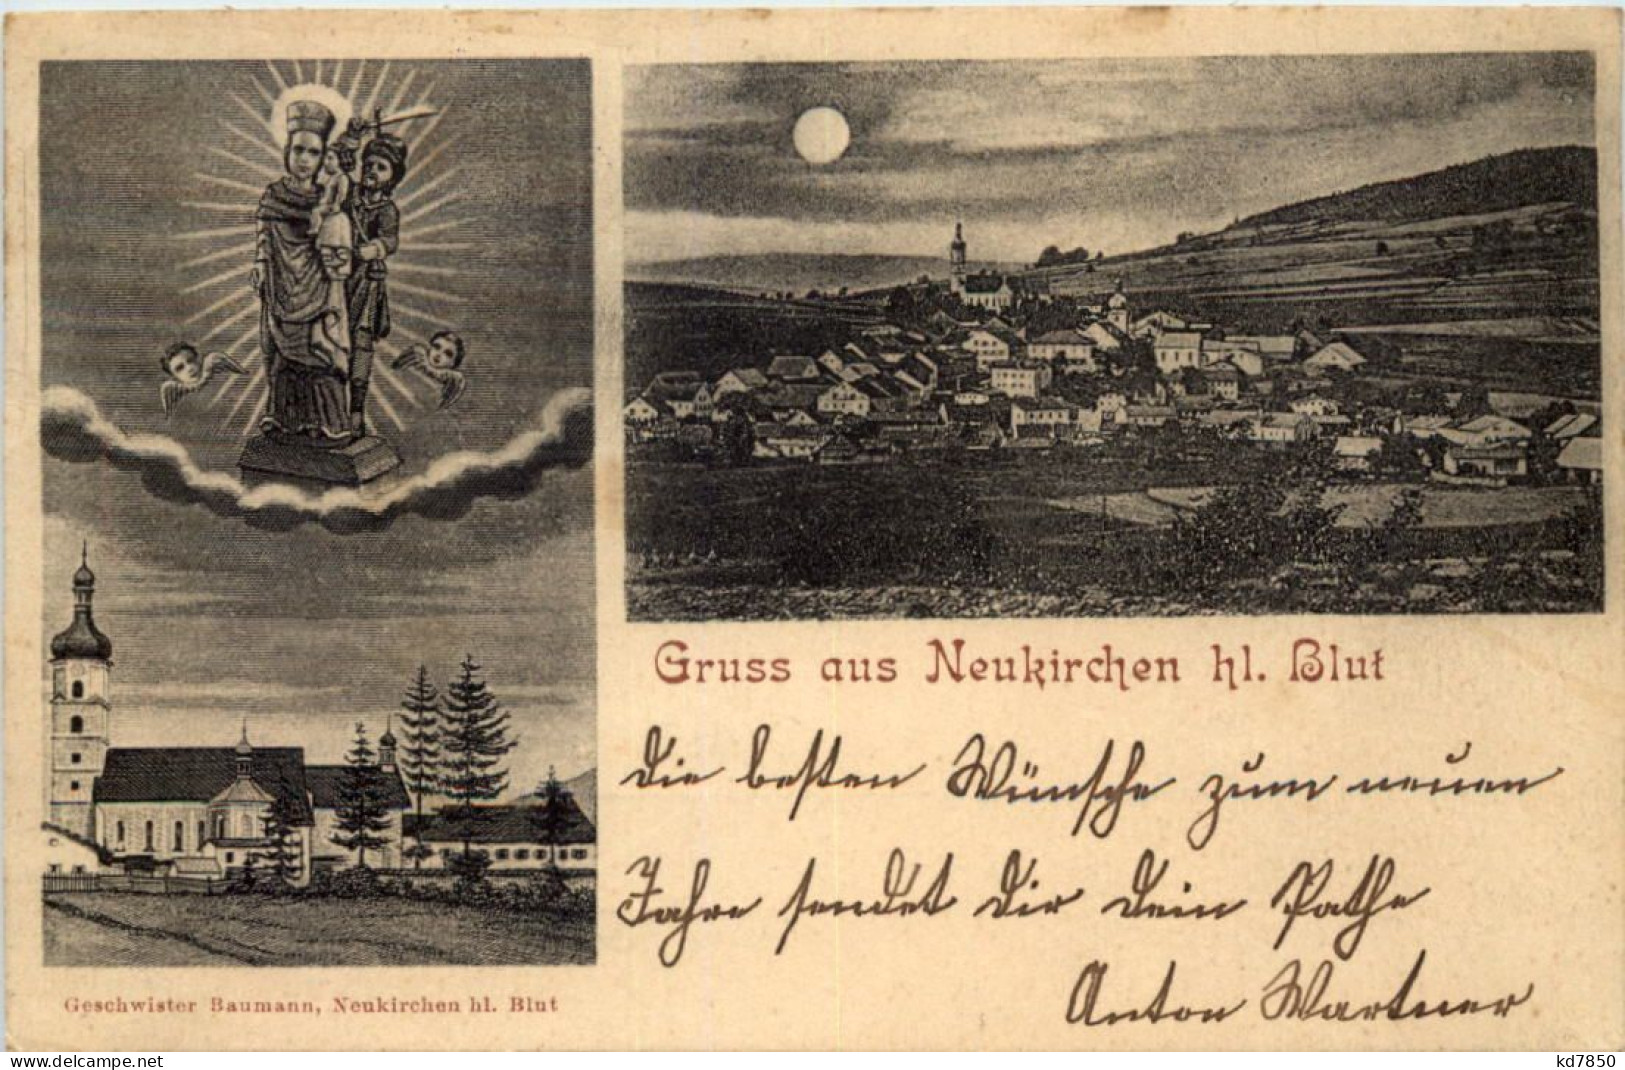 Gruss aus Neukirchen hl. Blut
die besten Wünsche zum neuen
Jahre sendet dir dein Pathe
Anton Wartner
Geschwister Baumann, Neukirchen hl. Blut
www.delcampe.net
kd7850